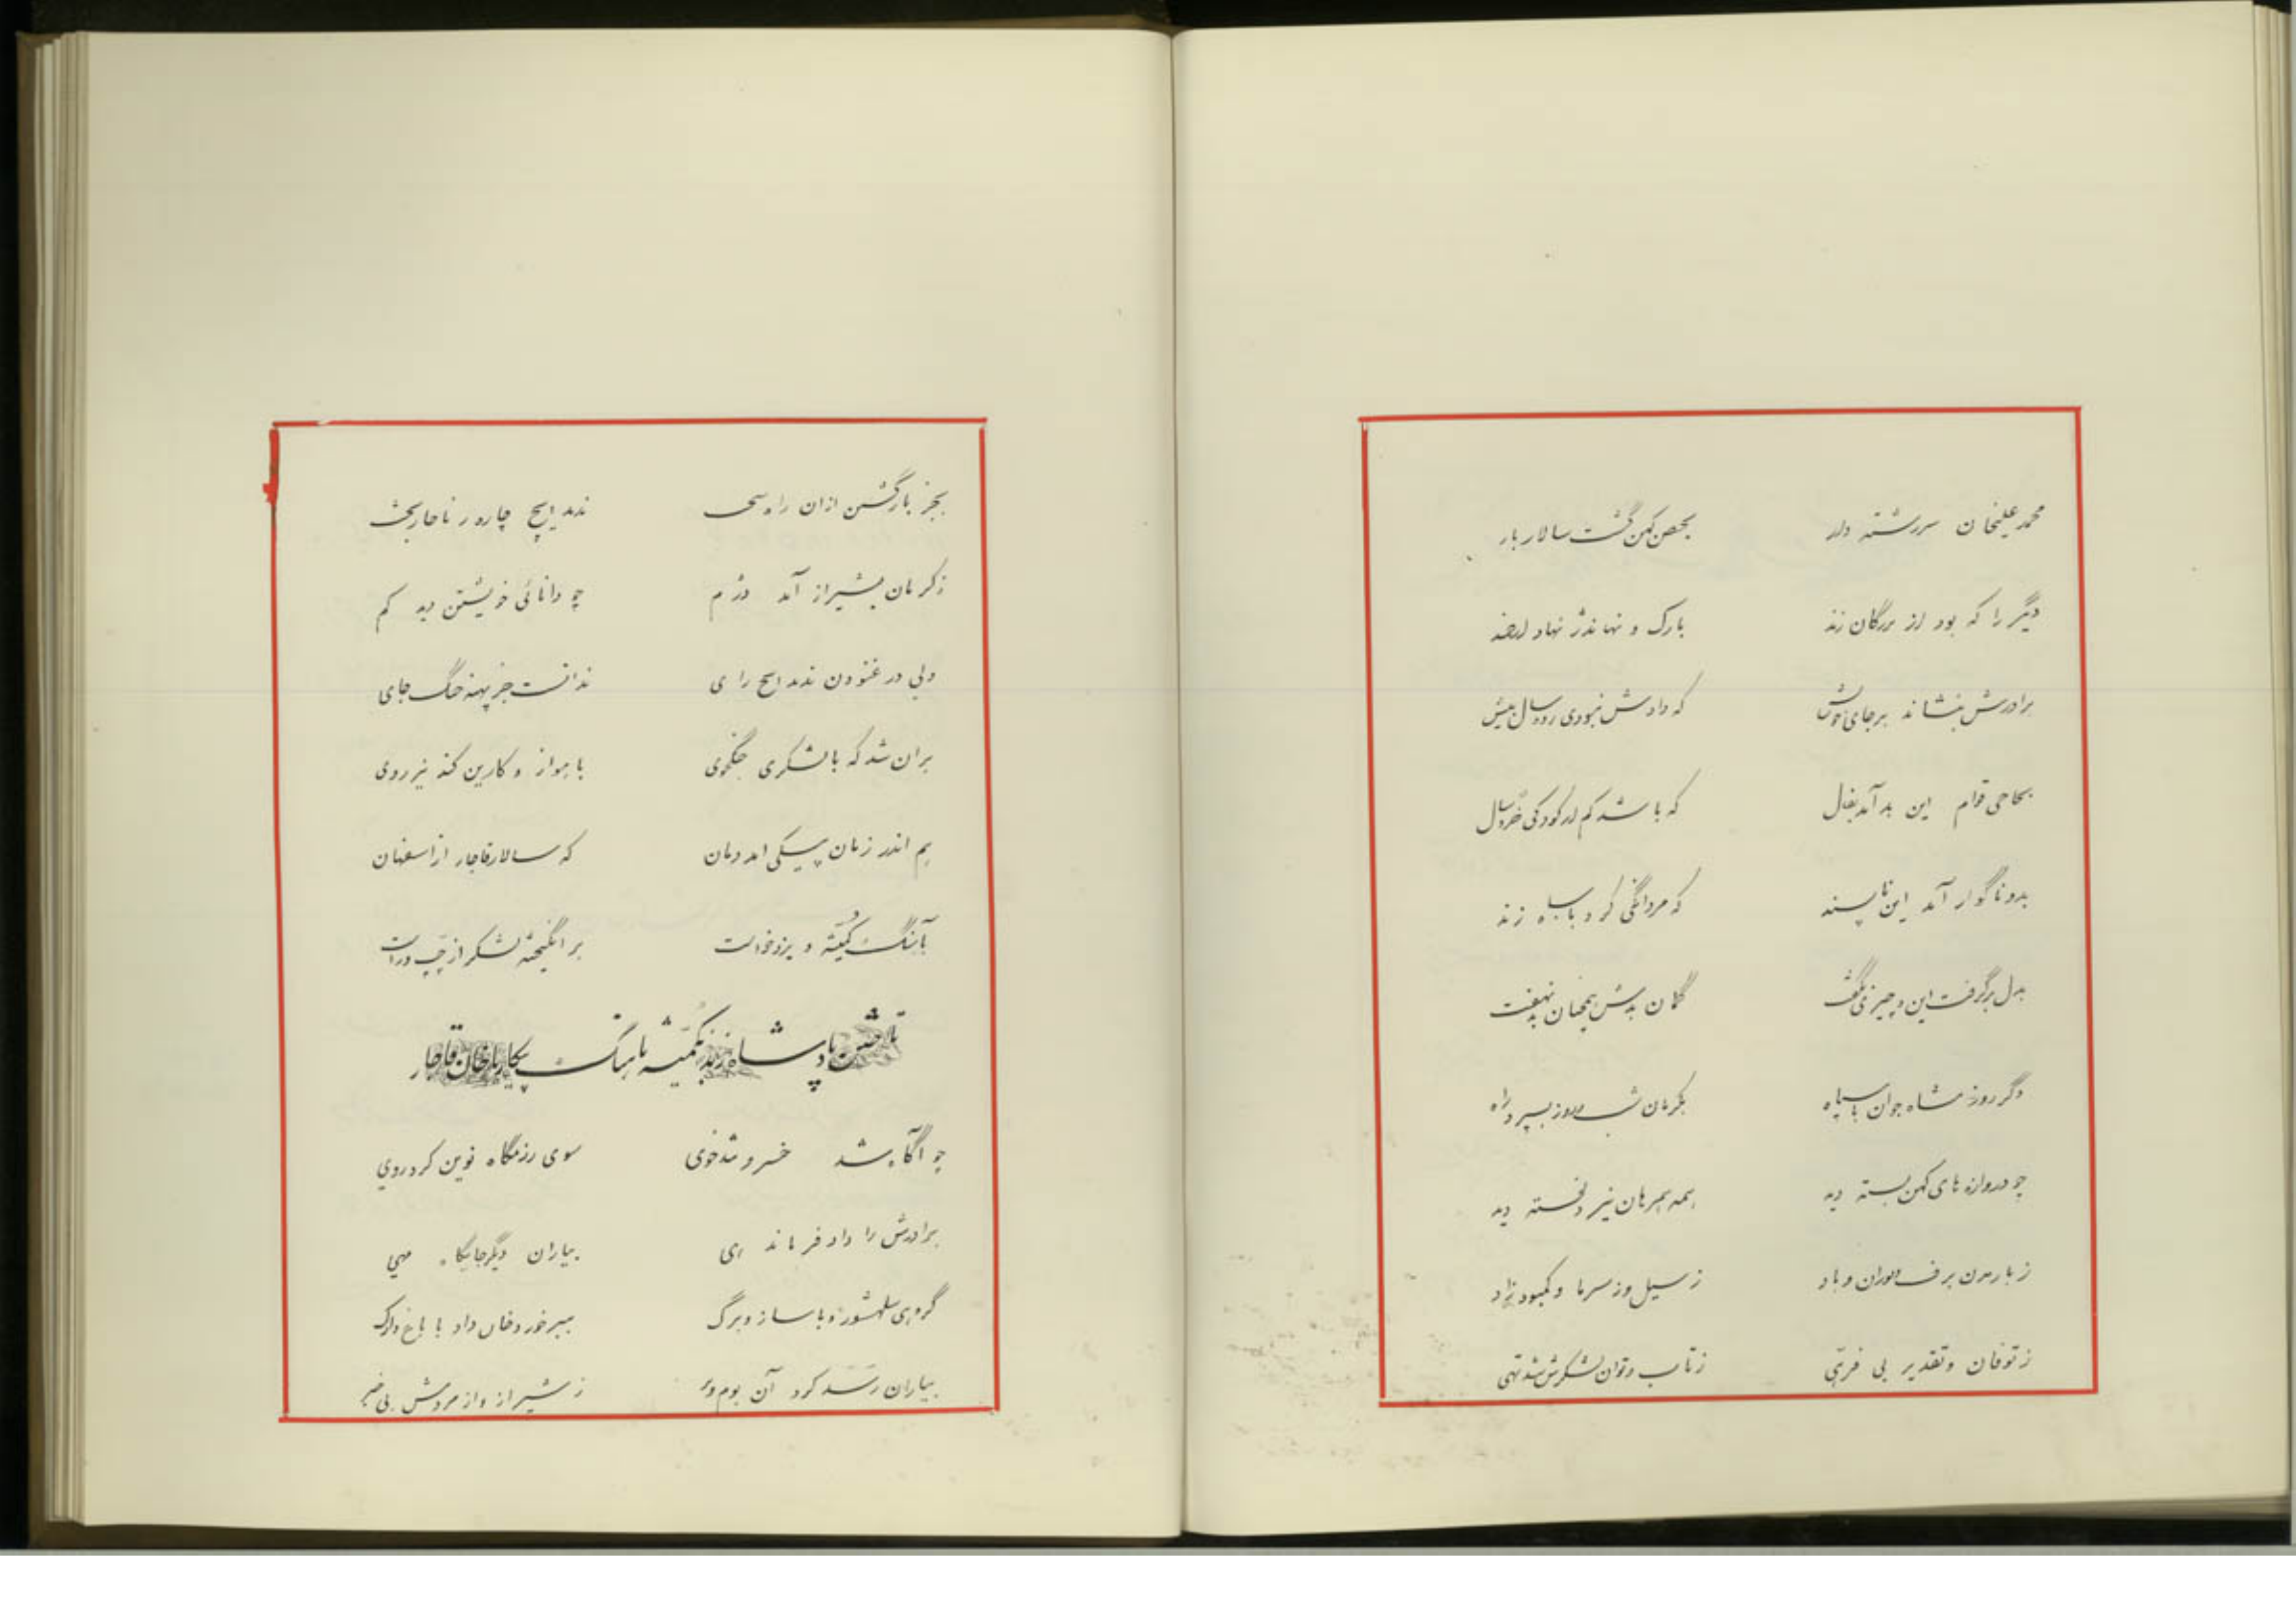 محمد علیخان سررشته دار بحصن کهن گشت سالار بار
دیگر را که بود از بزرگان زند بارک و نهاندژ نهاد
برادرش بنشاند بر جای خویش که دادش نبودی ز ده سال بیش
بحاجی قوام این بد آمد بفال که باشد کم از کودکی خردسال
بدو ناگوار آمد این ناپسند که مردانگی کرد با شاه زند
بدل برگرفت این و چیزی نگفت گمان بدش همچنان بد نهفت
دگر روز شاه جوان با سپاه بکرمان شب و روز بسپرد راه
چو دروازه های کهن بسته دید همه همرهان نیز دلخسته دید
ز باریدن برف و بوران و باد ز سیل و ز سرما و کمبود زاد
ز توفان و تقدیر بی فرهی ز تاب و توان لشکرش شد تهی
بجز بازگشتن ازان راه سخت ندید ایچ چاره ز ناچار بخت
ز کرمان بشیراز آمد دژم چو دانائی خویشتن دید کم
ولی در غنودن ندید ایچ رای ندانست جز پهنه جنگ جای
بران شد که با لشکری جنگجوی باهواز و کارین کند نیز روی
هم اندر زمان پیکی آمد دمان که سالار قاجار از اسفهان
بآهنگ کمشه و یزدخواست بر انگیخته لشکر از چپ و راست
تاختن پادشاه زند بکمشه بآهنگ پیکار با خان قاجار
چو آگاه شد خسرو تندخوی سوی رزمگاه نوین کرد روی
برادرش را داد فرماندهی بیاران دیگر جایگاه مهی
گروهی سلحشور و با ساز و برگ ببرخوردخان داد با باغ و ارک
بیاران رسد کرد آن بوم و بر ز شیراز و از مردمش بی خبر